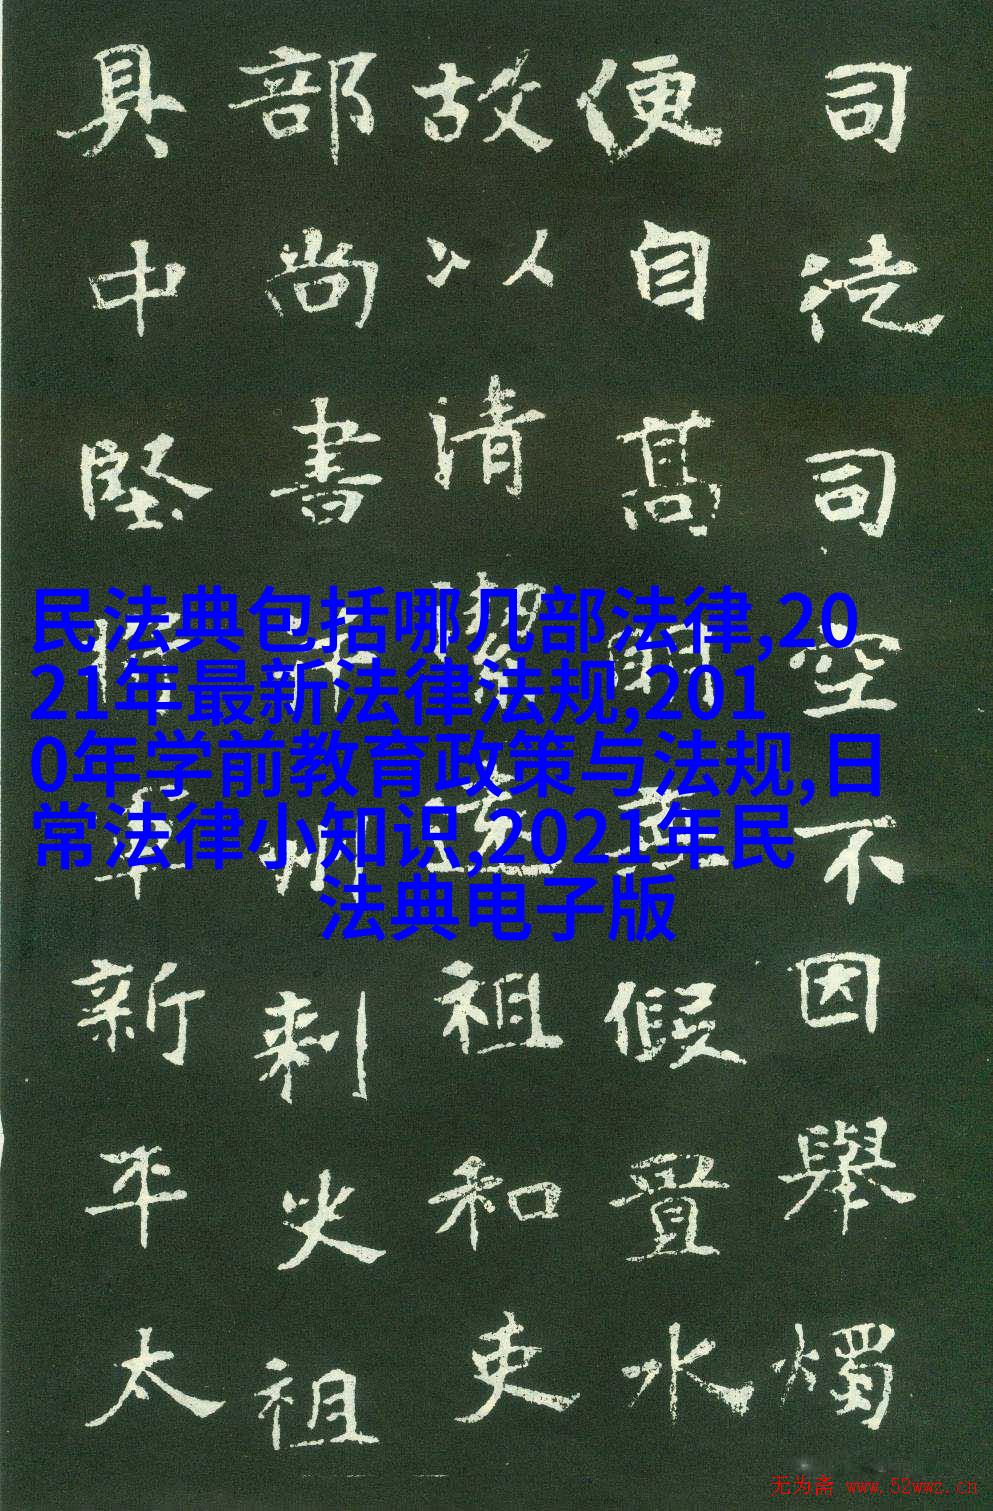 司徒司空不因舉燭
便自高 假置水
故以清 祖和吏
部尚書 州刺史祖
具中堅 軍新平太
民法典包括哪几部法律,20
21年最新法律法规,201
0年学前教育政策与法规,日
常法律小知识,2021年民
法典电子版
无为斋 www.52wwz.cn